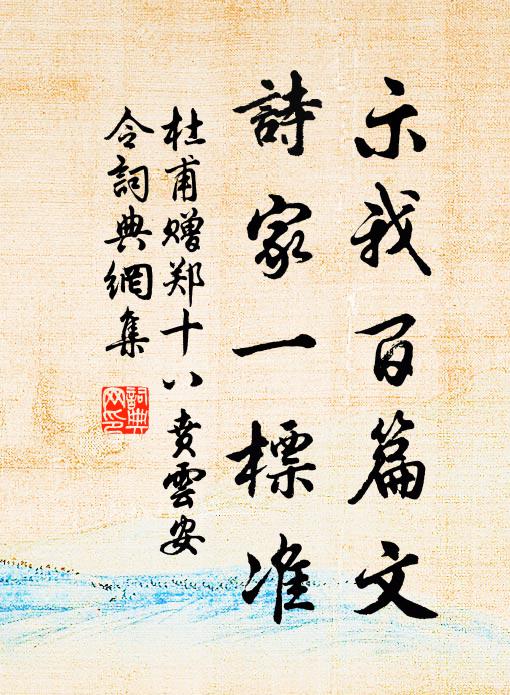 示我百篇文
詩家一標准
杜甫赠郑十八賁雲安
令詞典網集
詞典網印